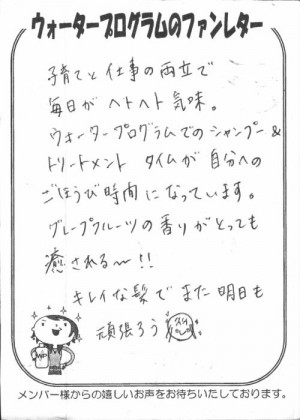 ウォータープログラムのファンレター
子育てと仕事の両立で
毎日がヘトヘト気味。
ウォータープログラムでのシャンプー&
トリートメント タイムが自分への
ごほうび時間になっています。
グレープフルーツの香りがとっても
癒される〜!!
キレイな髪でまた明日も
頑張ろう
メンバー様からの嬉しいお声をお待ちいたしております。